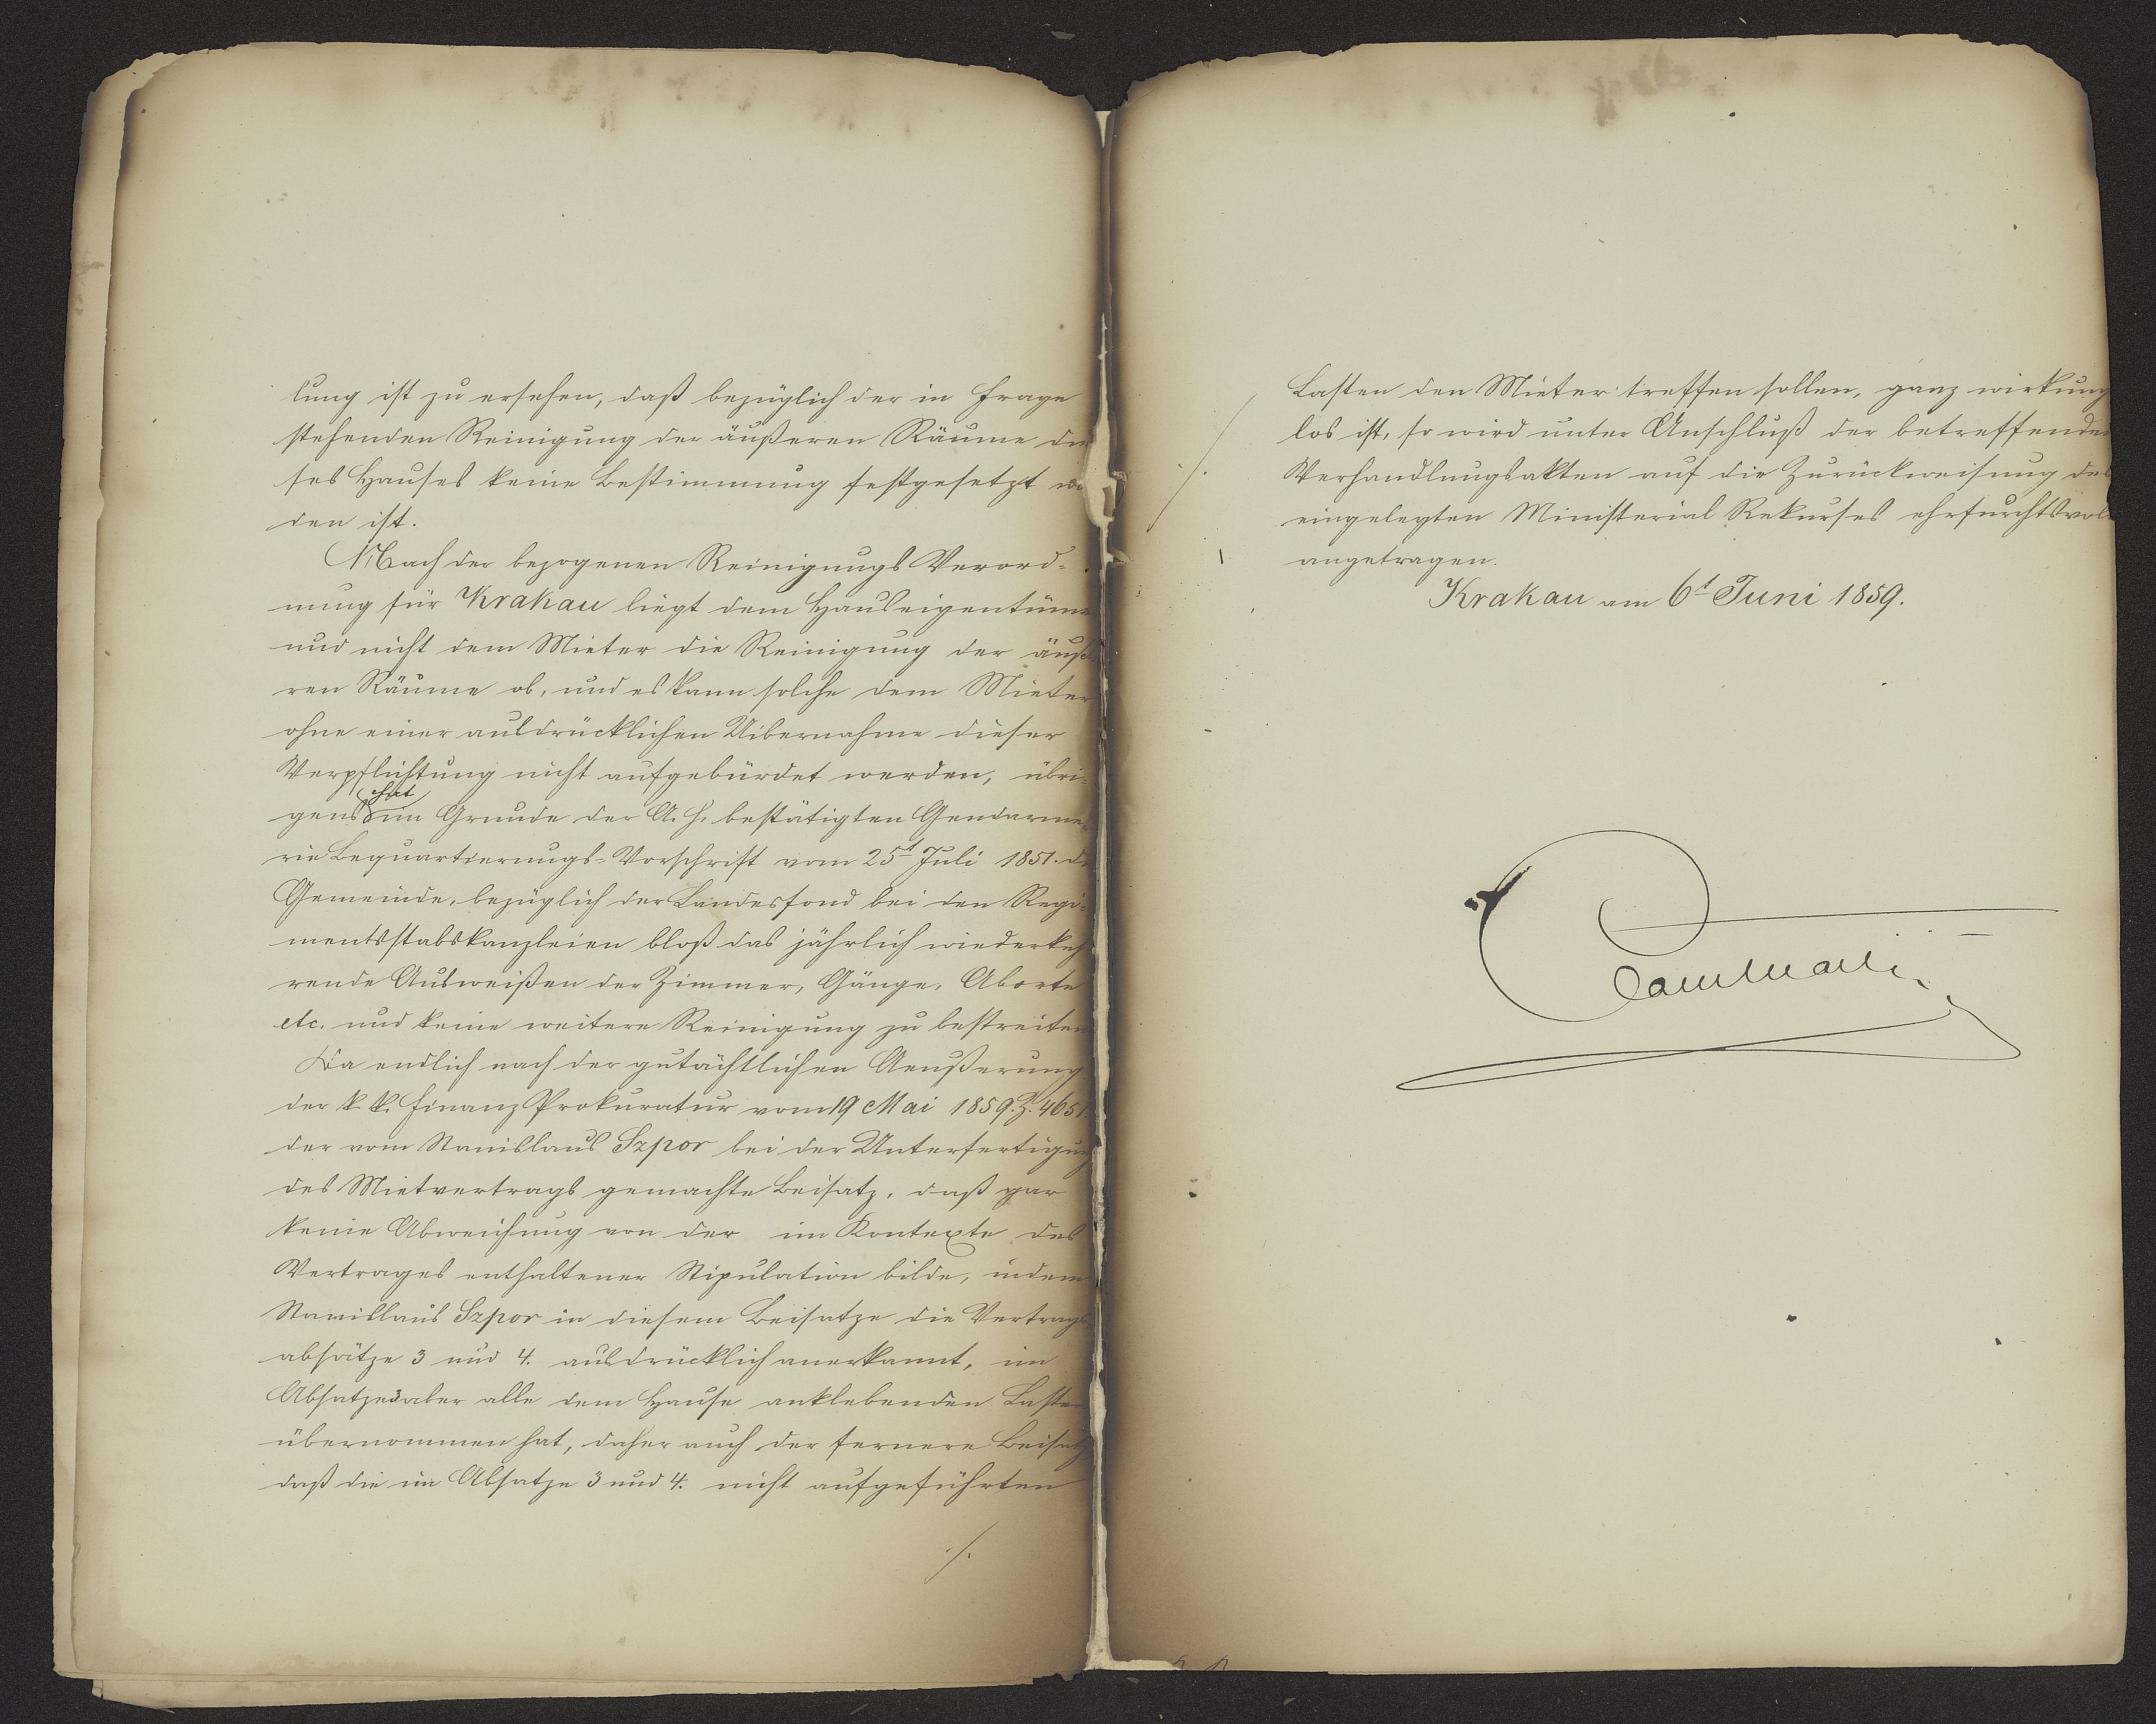 lung ist zu ersehen, daß bezüglich der in Frage
stehenden Reinigung der äußeren Räume die
ses Hauses keine Bestimmung festgesetzt wo
den ist.
Nach der bezogenen Reinigungs Verord-
nung für Krakau liegt dem Hauseigentüme
und nicht dem Mieter die Reinigung der äuße
ren Räume ob, und es kann solche dem Mieter
ohne einer ausdrücklichen Uibernahme dieser
Verpflichtung nicht aufgebürdet werden, übri-
gens hat im Grunde der A. h. bestätigten Gendarme-
rie Bequartierungs-Vorschrift vom 25t Juli 1851. d
Gemeinde, bezüglich der Landesfond bei den Regi-
mentsstabskanzleien bloß das jährlich wiederkeh
rende Ausweißen der Zimmer, Gänge, Aborte
etc. und keine weitere Reinigung zu bestreiten
Da endlich nach der gutächtlichen Aeußerung
der k. k. Finanz Prokuratur vom 19 Mai 1859. Z. 4651
der vom Stanislaus Szpor bei der Unterfertigung
des Mietvertrags gemachte Beisatz, daß gar
keine Abweichung von der im Kontexte des
Vertrages enthaltener Stipulation bilde, indem
Stanislaus Szpor in diesem Beisatze die Vertrags
absätze 3 und 4. ausdrücklich anerkannt, im
Absatze 3 aber alle dem Hause anklebenden Lasten
übernommen hat, daher auch der fernere Beisatz
daß die im Absatze 3 und 4. nicht aufgeführten
./.
Lasten den Mieter treffen sollen, ganz wirkung
los ist, so wird unter Anschluß der betreffenden
Verhandlungsakten auf die Zurückweisung des
eingelegten Ministerial Rekurses ehrfurchtsvol
angetragen.
Krakau am 6t Juni 1859.